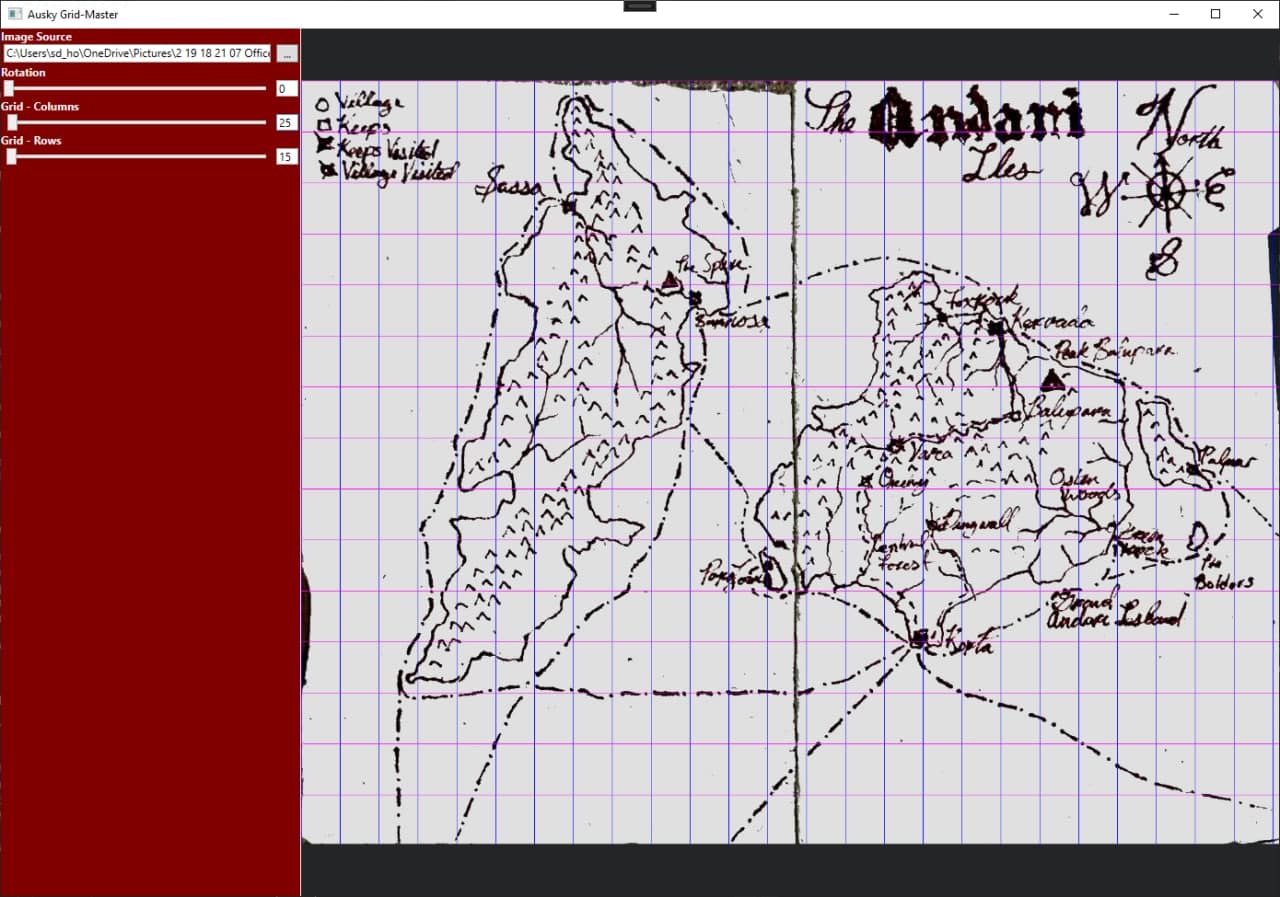 Ausky Grid-Master
Image Source
C:\Users\sd_ho\OneDrive\Pictures\2 19 18 21 07 Office
...
Rotation
0
Grid - Columns
25
Grid - Rows
15
Village
Keeps
Keeps Visited
Village Visited
The Andari
Iles
North
W
E
S
Sassa
The Spire
Foxrock
Kervada
Peak Balupara
Balupara
Varca
Palmar
Osten
Woods
Dungwall
Central
Forest
The
Bolders
Grand
Andari Island
Korta